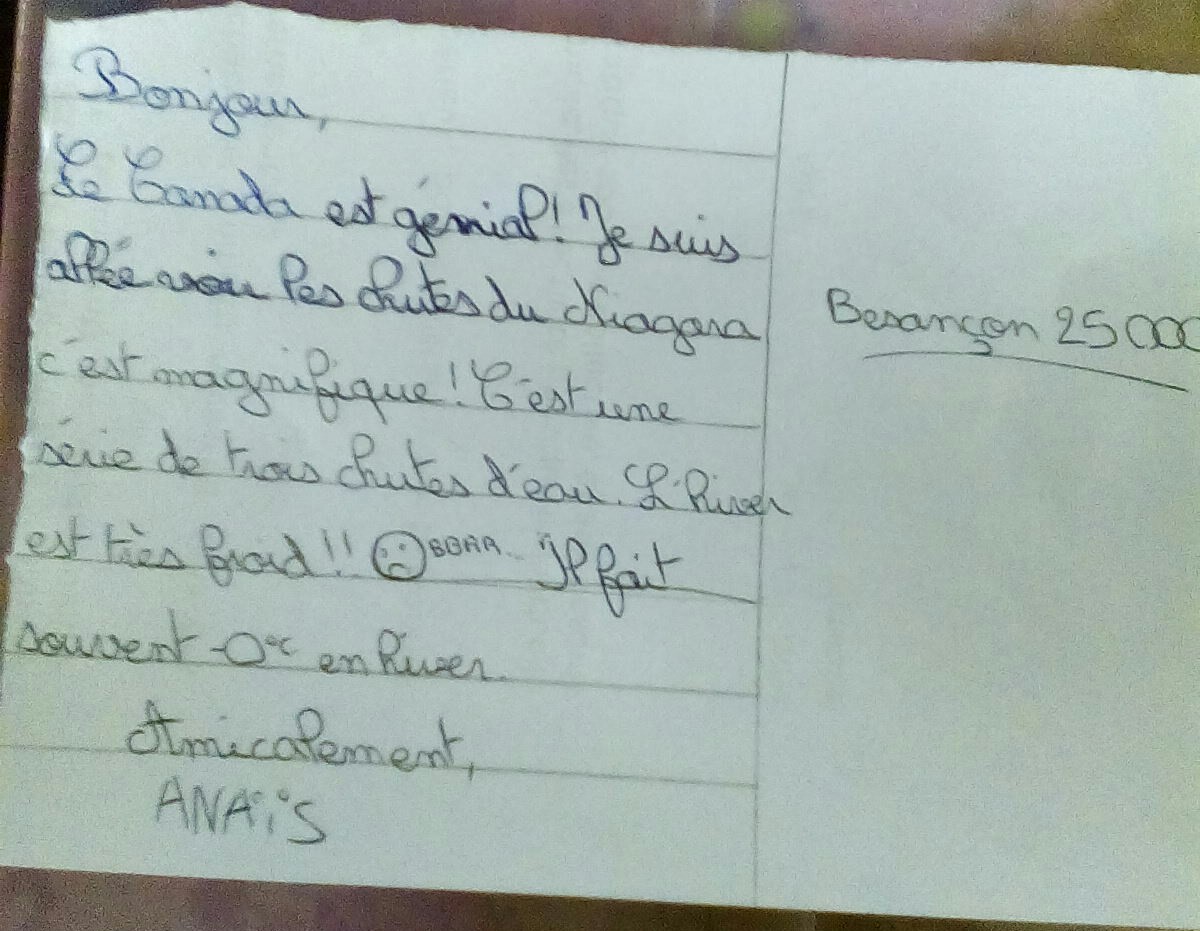 Bonjour,
Le Canada est génial! Je suis
allée voir les chutes du Niagara
c'est magnifique! C'est une
série de trois chutes d'eau. L'hiver
est très froid!! BBRR... Il fait
souvent -0°c en hiver.
Amicalement,
ANAïS
Besançon 25000